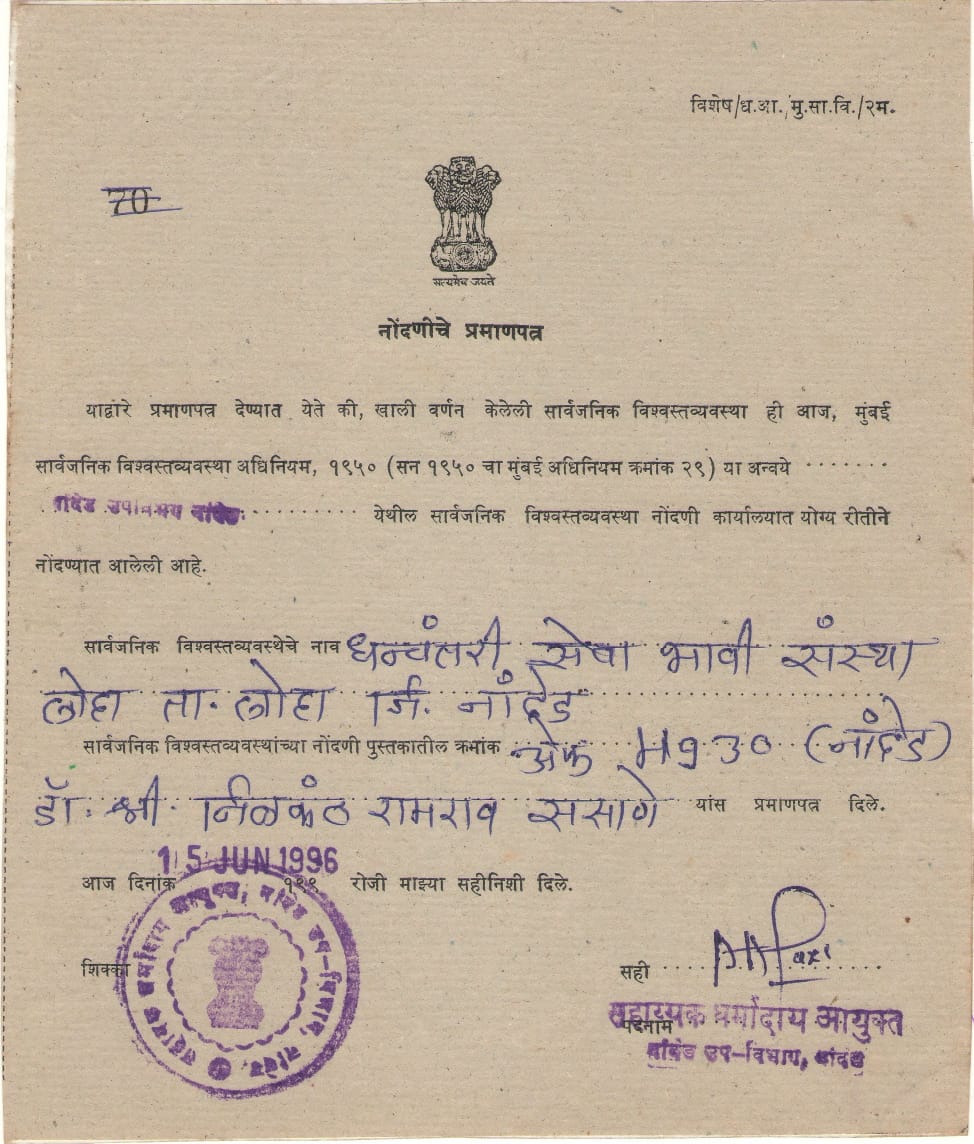 विशेष/ध.आ./मु.सा.वि./२म.
70
सत्यमेव जयते
नोंदणीचे प्रमाणपत्र
याद्वारे प्रमाणपत्र देण्यात येते की, खाली वर्णन केलेली सार्वजनिक विश्वस्तव्यवस्था ही आज, मुंबई
सार्वजनिक विश्वस्तव्यवस्था अधिनियम, १९५० (सन १९५० चा मुंबई अधिनियम क्रमांक २९) या अन्वये .......
नांदेड उपविभाग नांदेड ............ येथील सार्वजनिक विश्वस्तव्यवस्था नोंदणी कार्यालयात योग्य रीतीने
नोंदण्यात आलेली आहे.
सार्वजनिक विश्वस्तव्यवस्थेचे नाव धन्वंतरी सेवा भावी संस्था
लोहा ता. लोहा जि. नांदेड
सार्वजनिक विश्वस्तव्यवस्थांच्या नोंदणी पुस्तकातील क्रमांक अेफ म९३० (नांदेड)
डॉ. श्री. निळकंठ रामराव ससाणे यांस प्रमाणपत्र दिले.
15 JUN 1996
आज दिनांक १९९ रोजी माझ्या सहीनिशी दिले.
सहायक धर्मादाय आयुक्त, नांदेड उप-विभाग, नांदेड.
शिक्का
सही
सहाय्यक धर्मादाय आयुक्त
पदनाम
नांदेड उप-विभाग, नांदेड